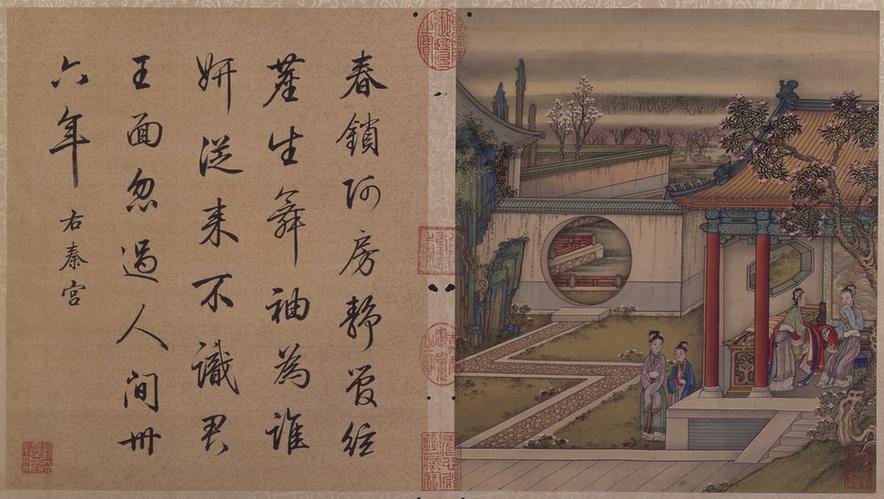 春鎖阿房静管絃
塵生舞袖為誰
妍從来不識君
王面忽過人間卅
六年 右秦宮